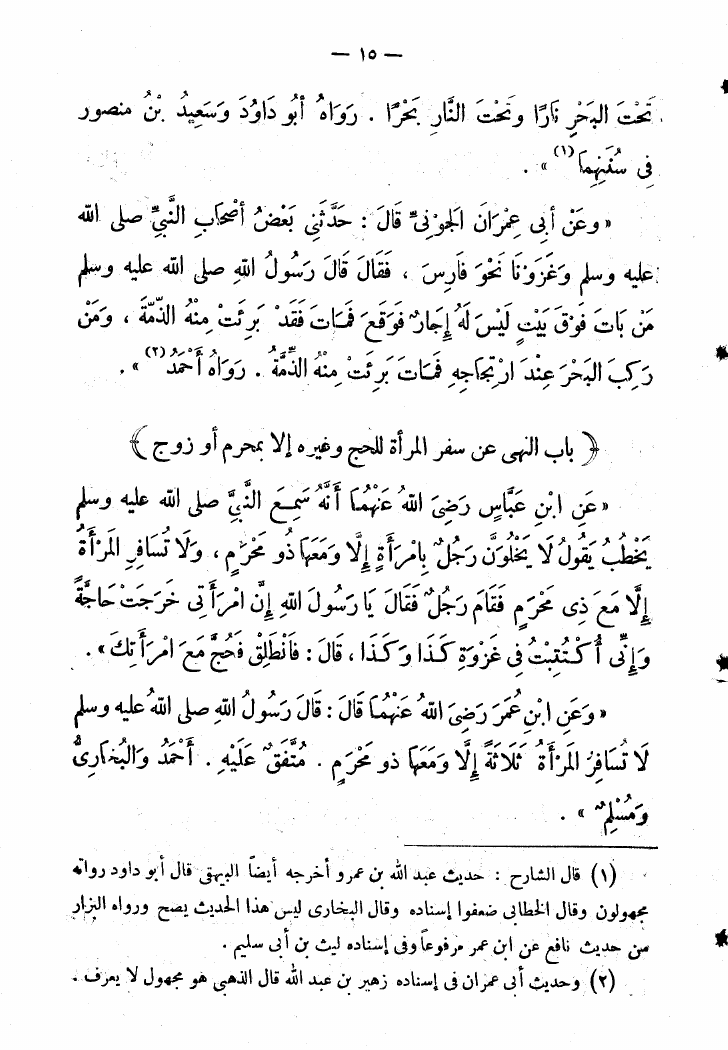 — ١٥ —
تَحْتَ البَحْرِ نَارًا وَتَحْتَ النَّارِ بَحْرًا . رَوَاهُ أَبُو دَاوُدَ وَسَعِيدُ بْنُ منصور
فى سُنَنِهِمَا (١) » .
« وعَنْ أَبى عِمْرَانَ الجوْنِىِّ قَالَ : حَدَّثَنِى بَعْضُ أَصْحَابِ النَّبِىِّ صلى الله
عليه وسلم وَغَزَوْنَا نَحْوَ فَارِسَ ، فَقَالَ قَالَ رَسُولُ اللهِ صلى الله عليه وسلم
مَنْ بَاتَ فَوْقَ بَيْتٍ لَيْسَ لَهُ إِجَارٌ فَوَقَعَ فَمَاتَ فَقَدْ بَرِئَتْ مِنْهُ الذِّمَّةُ ، وَمَنْ
رَكِبَ البَحْرَ عِنْدَ ارْتِجَاجِهِ فَمَاتَ بَرِئَتْ مِنْهُ الذِّمَّةُ . رَوَاهُ أَحْمَدُ (٢) » .
﴿ باب النهى عن سفر المرأة للحج وغيره إلا بمحرم أو زوج ﴾
« عَنِ ابْنِ عَبَّاسٍ رَضِىَ اللهُ عَنْهُمَا أَنَّهُ سَمِعَ النَّبِىَّ صلى الله عليه وسلم
يَخْطُبُ يَقُولُ لَا يَخْلُوَنَّ رَجُلٌ بِامْرَأَةٍ إِلَّا وَمَعَهَا ذُو مَحْرَمٍ ، وَلَا تُسَافِرِ المَرْأَةُ
إِلَّا مَعَ ذِى مَحْرَمٍ فَقَامَ رَجُلٌ فَقَالَ يَا رَسُولَ اللهِ إِنَّ امْرَأَتِى خَرَجَتْ حَاجَّةً
وَإِنِّى اُكْتُتِبْتُ فِى غَزْوَةِ كَذَا وَكَذَا ، قَالَ : فَانْطَلِقْ فَحُجَّ مَعَ امْرَأَتِكَ » .
« وَعَنِ ابْنِ عُمَرَ رَضِىَ اللهُ عَنْهُمَا قَالَ : قَالَ رَسُولُ اللهِ صلى اللهُ عليه وسلم
لَا تُسَافِرُ المَرْأَةُ ثَلَاثَةً إِلَّا وَمَعَهَا ذو مَحْرَمٍ . مُتَّفَقٌ عَلَيْهِ . أَحْمَدُ وَالْبُخَارِىُّ
وَمُسْلِمٌ » .
(١) قال الشارح : حديث عبد الله بن عمرو أخرجه أيضاً البيهقى قال أبو داود رواته
مجهولون وقال الخطابى ضعفوا إسناده وقال البخارى ليس هذا الحديث يصح ورواه البزار
من حديث نافع عن ابن عمر مرفوعاً وفى إسناده ليث بن أبى سليم .
(٢) وحديث أبى عمران فى إسناده زهير بن عبد الله قال الذهبى هو مجهول لا يعرف .